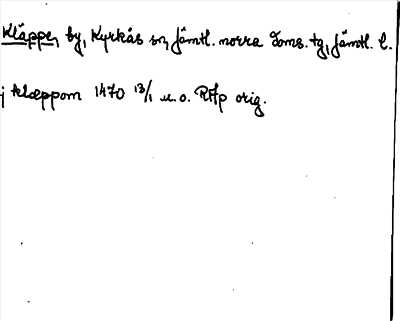 Kläppe, by, Kyrkås sn, Jämtl. norra doms. tg, Jämtl. l.
j klæppom 1470 13/1 u. o. RAp orig.